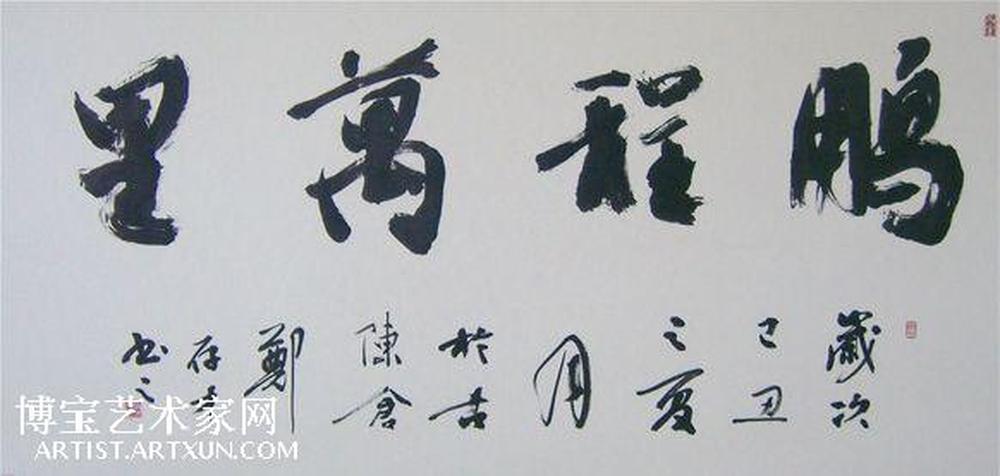 鵬程萬里
歲次
己丑
之夏
月
於古
陳倉
鄭
存
书之
博宝艺术家网
ARTIST.ARTXUN.COM